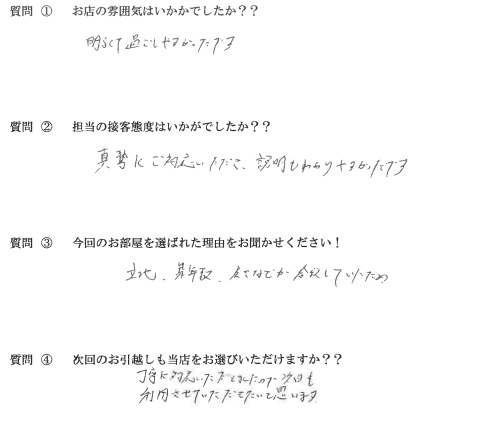 質問 ① お店の雰囲気はいかかでしたか？？
明るくて過ごしやすかったです
質問 ② 担当の接客態度はいかがでしたか？？
真摯にご対応いただき、説明もわかりやすかったです
質問 ③ 今回のお部屋を選ばれた理由をお聞かせください！
立地、築年数、広さなどが合致していたため
質問 ④ 次回のお引越しも当店をお選びいただけますか？？
丁寧に対応いただきましたので次回も
利用させていただきたいと思います